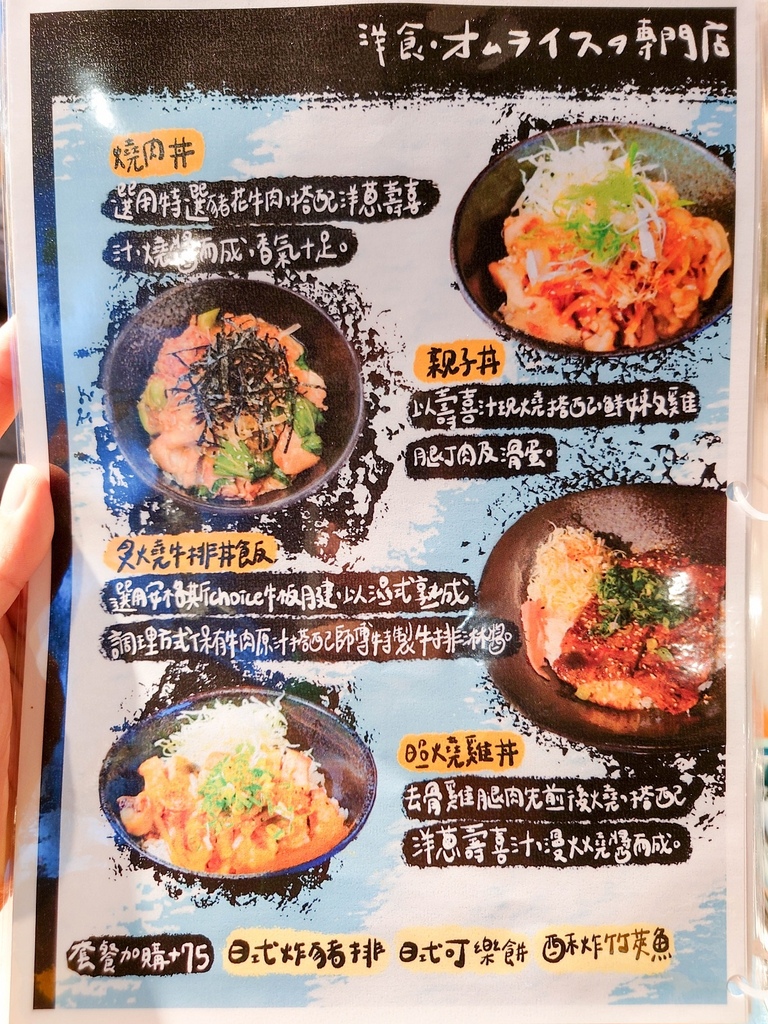 洋食・オムライスの専門店
燒肉丼
選用特選豬花牛肉,搭配洋蔥壽喜
汁,燒醬而成,香氣十足。
親子丼
以壽喜汁現燒搭配鮮嫩雞
腿丁肉及滑蛋。
炙燒牛排丼飯
選用安格斯choice牛板腱,以濕式熟成
調理方式保有牛肉原汁搭配師傅特製牛排淋醬。
照燒雞丼
去骨雞腿肉先煎後燒,搭配
洋蔥壽喜汁,漫火燒醬而成。
套餐加購+75
日式炸豬排 日式可樂餅 酥炸竹莢魚